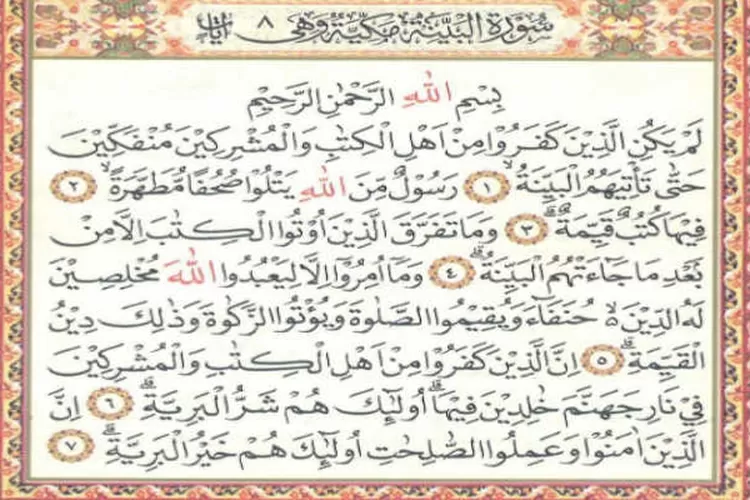 سُورَةُ الْبَيِّنَةِ مَكِّيَّةٌ وَهِيَ ٨ آيَاتٍ
بِسْمِ اللهِ الرَّحْمٰنِ الرَّحِيمِ
لَمْ يَكُنِ الَّذِينَ كَفَرُوا مِنْ اَهْلِ الْكِتٰبِ وَالْمُشْرِكِينَ مُنْفَكِّينَ
حَتّٰى تَأْتِيَهُمُ الْبَيِّنَةُۙ ﴿١﴾ رَسُولٌ مِّنَ اللهِ يَتْلُوا صُحُفًا مُّطَهَّرَةًۙ ﴿٢﴾
فِيهَا كُتُبٌ قَيِّمَةٌ ﴿٣﴾ وَمَا تَفَرَّقَ الَّذِينَ اُوتُوا الْكِتٰبَ اِلَّا مِنْ
بَعْدِ مَا جَاءَتْهُمُ الْبَيِّنَةُ ﴿٤﴾ وَمَا اُمِرُوا اِلَّا لِيَعْبُدُوا اللهَ مُخْلِصِينَ
لَهُ الدِّينَ ۙ حُنَفَاءَ وَيُقِيمُوا الصَّلٰوةَ وَيُؤْتُوا الزَّكٰوةَ وَذٰلِكَ دِينُ
الْقَيِّمَةِ ﴿٥﴾ اِنَّ الَّذِينَ كَفَرُوا مِنْ اَهْلِ الْكِتٰبِ وَالْمُشْرِكِينَ
فِي نَارِ جَهَنَّمَ خٰلِدِينَ فِيهَا اُولٰئِكَ هُمْ شَرُّ الْبَرِيَّةِ ﴿٦﴾ اِنَّ
الَّذِينَ اٰمَنُوا وَعَمِلُوا الصّٰلِحٰتِ اُولٰئِكَ هُمْ خَيْرُ الْبَرِيَّةِ ﴿٧﴾